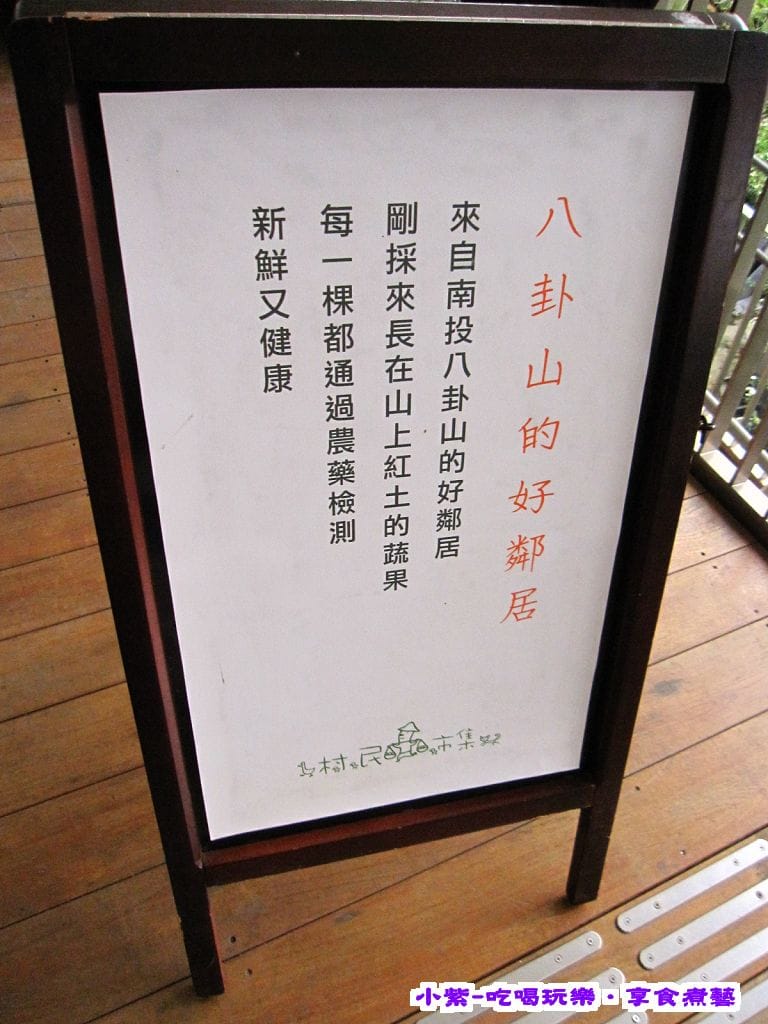 八卦山的好鄰居
來自南投八卦山的好鄰居
剛採來長在山上紅土的蔬果
每一棵都通過農藥檢測
新鮮又健康
村民市集
小紫-吃喝玩樂·享食煮藝